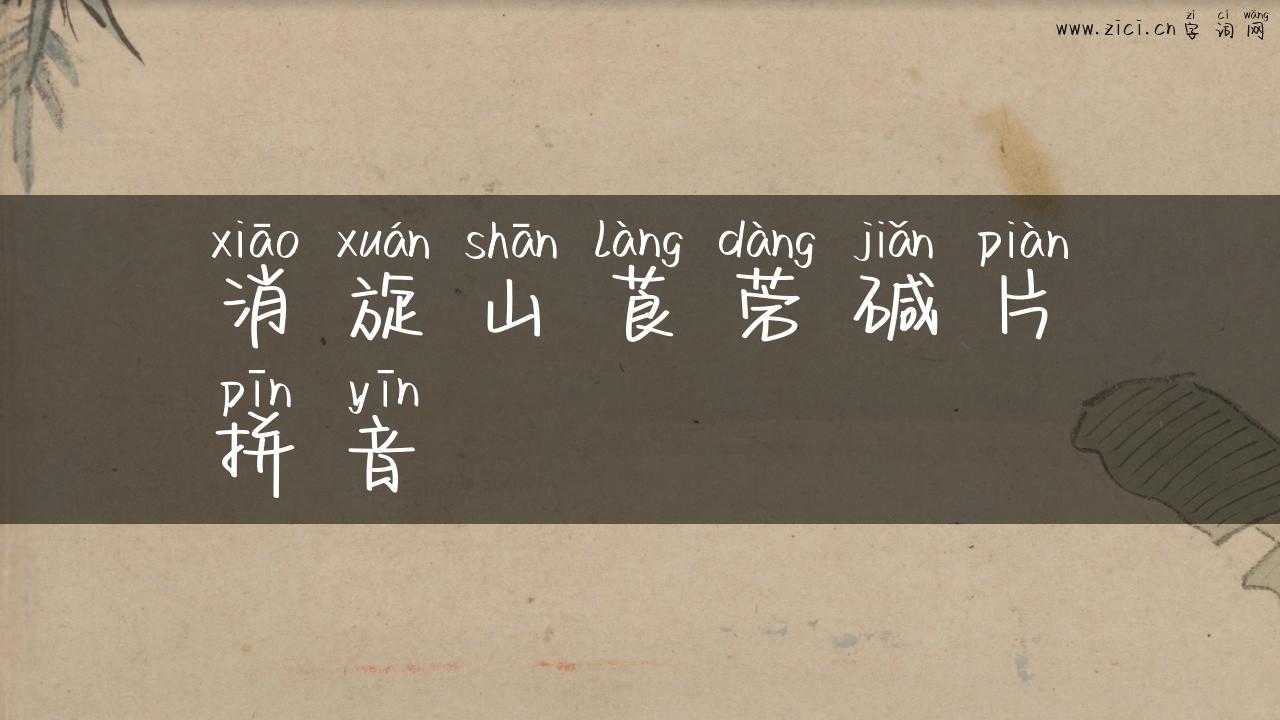 zì cí wǎng
www.zici.cn 字词网
xiāo xuán shān làng dàng jiǎn piàn
消旋山莨菪碱片
pīn yīn
拼音